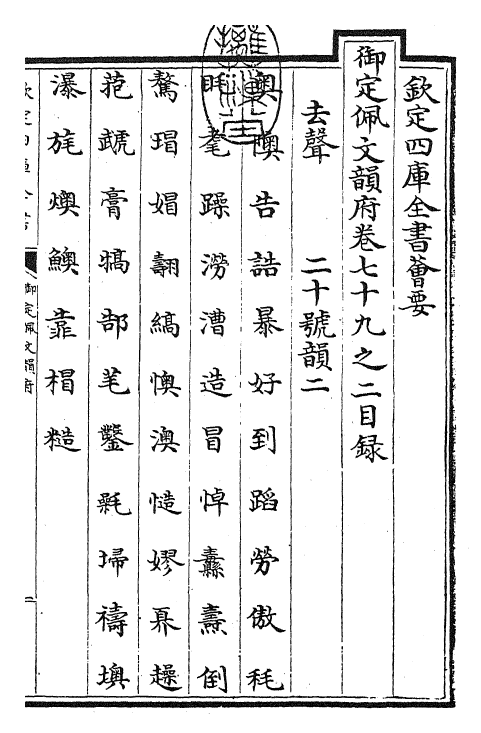 欽定四庫全書薈要
御定佩文韻府卷七十九之二目録
去聲　二十號韻二
奥懊告誥暴好到蹈勞傲秏
眊耄躁澇漕造冒悼纛燾倒
驁瑁媢翿縞懊澳慥嫪奡趮
芼虣膏犒郜芼鑿耗埽禱墺
瀑旄燠鱮靠榥糙
御定佩文韻府